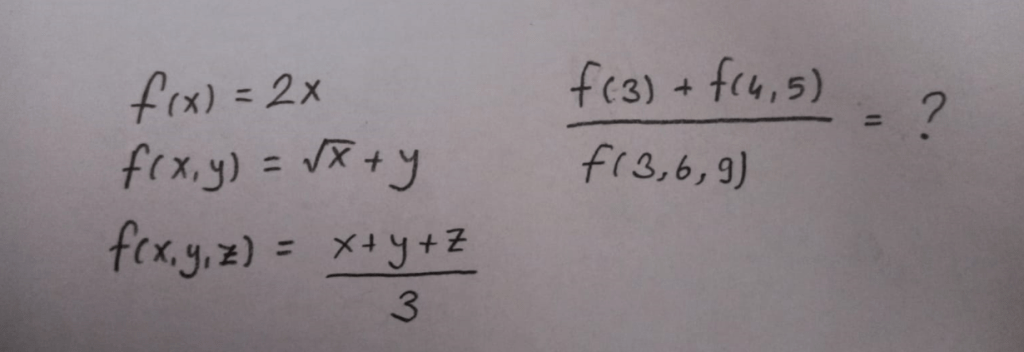 f(x) = 2x
f(x,y) = √x + y
f(x,y,z) = x+y+z
3
f(3) + f(4,5)
f(3,6,9)
= ?